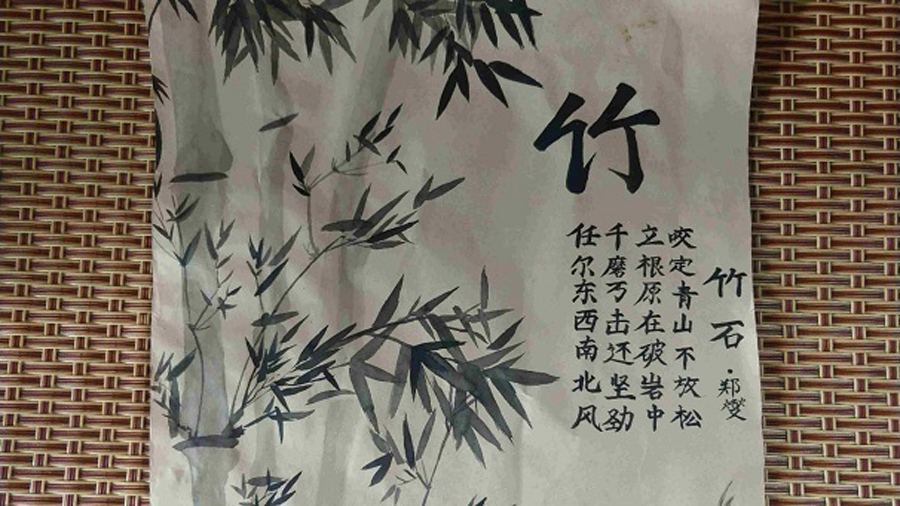 竹
竹石·郑燮
咬定青山不放松
立根原在破岩中
千磨万击还坚劲
任尔东西南北风